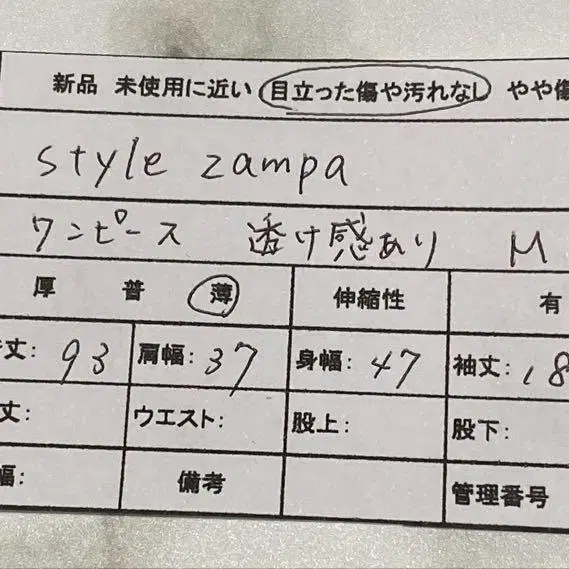 新品 未使用に近い 目立った傷や汚れなし やや傷
style zampa
ワンピース 透け感あり M
厚 普 薄 伸縮性 有
丈: 93 肩幅: 37 身幅: 47 袖丈: 18
丈: ウエスト: 股上: 股下:
幅: 備考 管理番号